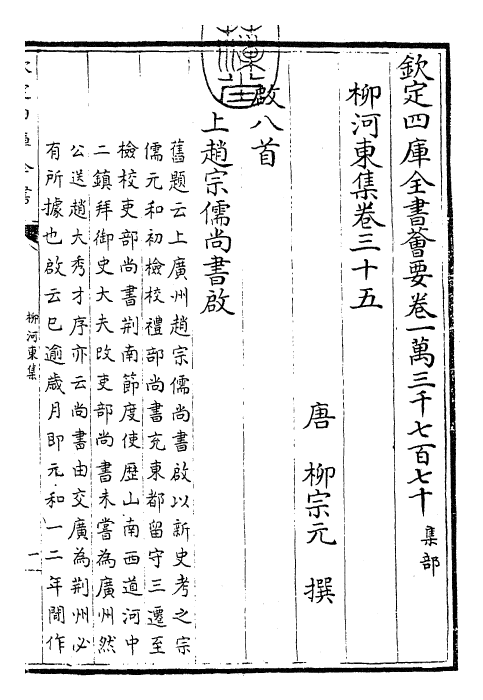 欽定四庫全書薈要卷一萬三千七百七十 集部
柳河東集卷三十五
唐 柳宗元 撰
啟八首
上趙宗儒尚書啟
舊題云上廣州趙宗儒尚書啟以新史考之宗
儒元和初檢校禮部尚書充東都留守三遷至
檢校吏部尚書荆南節度使歴山南西道河中
二鎮拜御史大夫改吏部尚書未嘗為廣州然
公送趙大秀才序亦云尚書由交廣為荆州必
有所據也啟云已逾歲月即元和一二年間作
欽定四庫全書
柳河東集
一